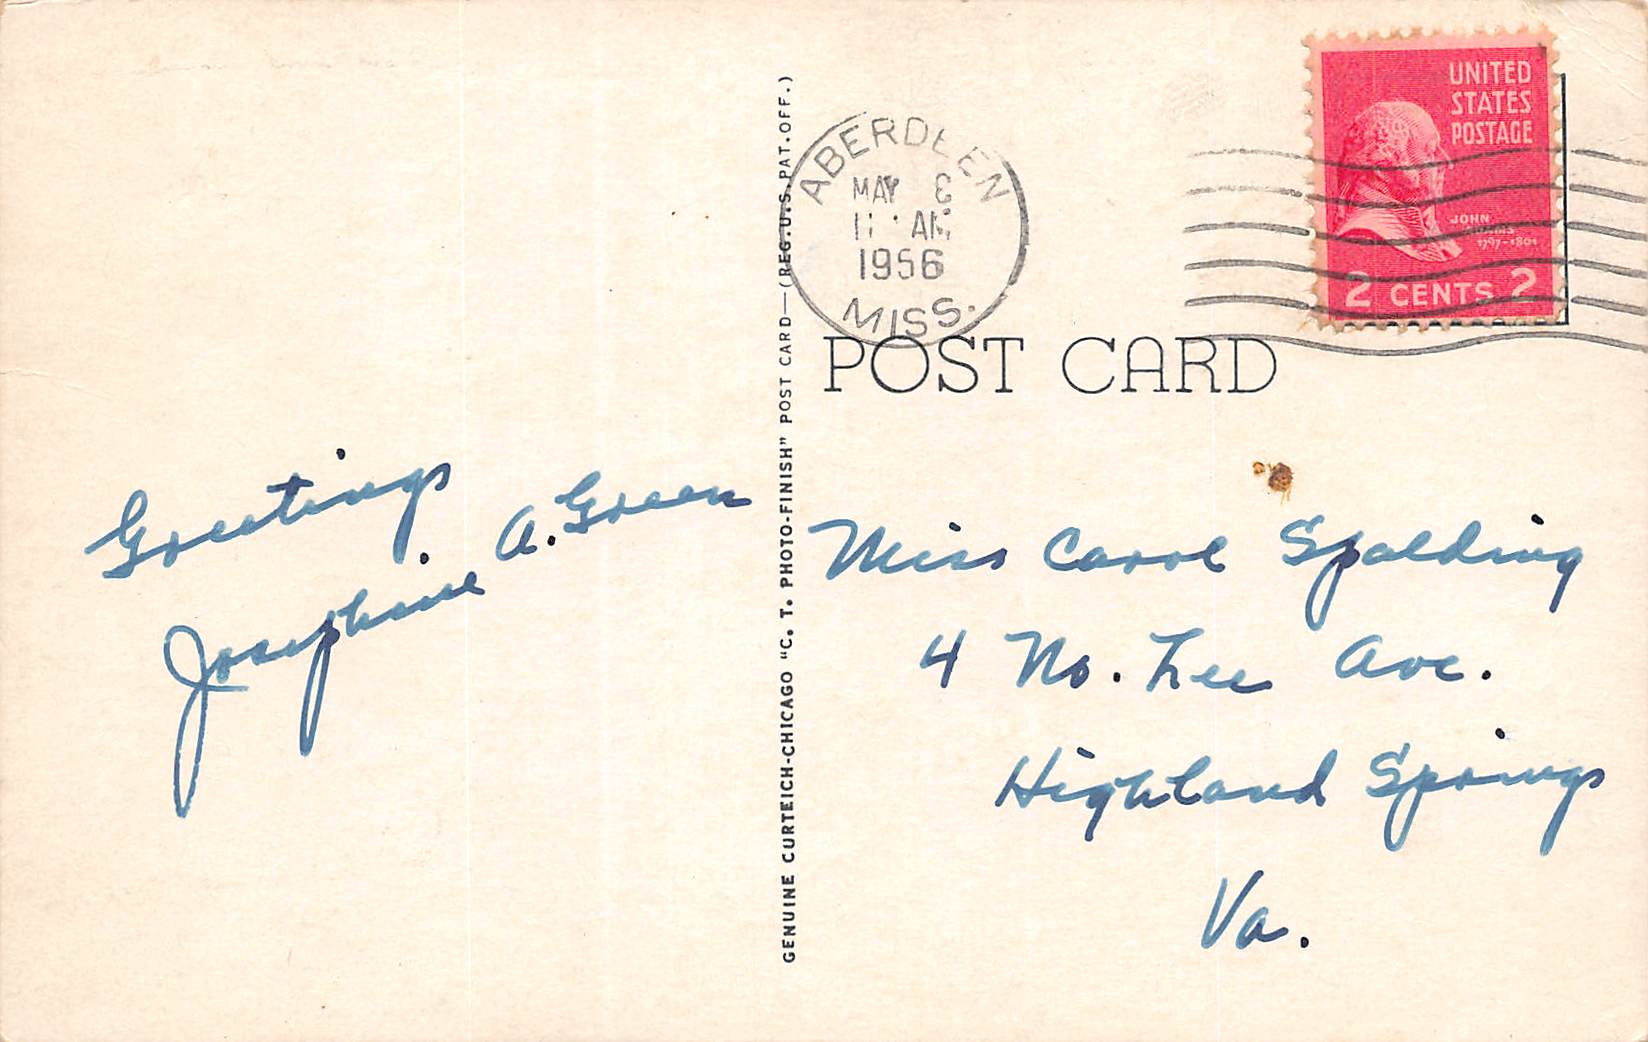 Greetings
Josephine A. Green
GENUINE CURTEICH-CHICAGO "C. T. PHOTO-FINISH" POST CARD—(REG.U.S.PAT.OFF.)
ABERDEEN
MAY
AM
1956
MISS.
UNITED
STATES
POSTAGE
JOHN
ADAMS
1797-1801
2 CENTS 2
POST CARD
Miss Carol Spalding
4 No. Lee Ave.
Highland Springs
Va.